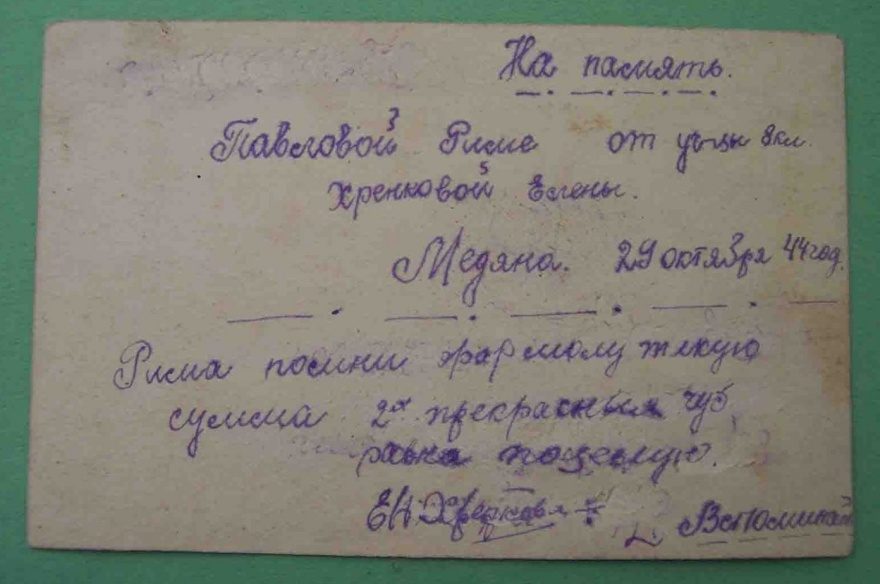 На память.
Павловой Риме от уч-цы 8 кл.
Хренковой Елены.
Медяна. 29 октября 44 год.
Рима помни формолу ткую
сумма 2х прекрасных губ
равна поцелую.
ЕН Хренкова
Вспоминай